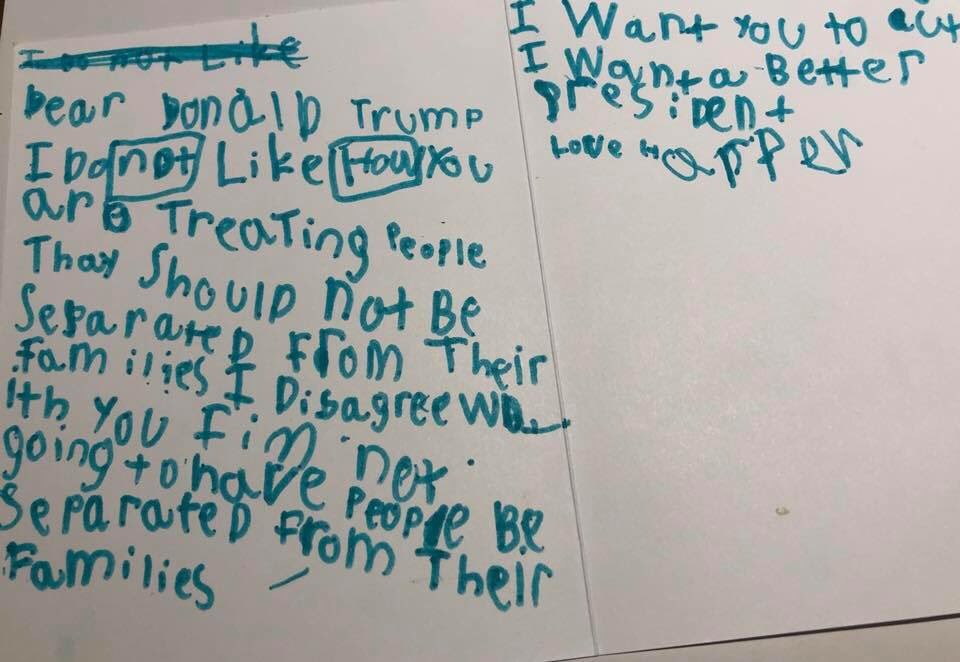 I Do not Like
Dear Donald Trump
I Do not Like How You
are Treating People
Thay Should not Be
Separated From Their
families I Disagree W
ith you I im not
going to have not
Separated People Be
From Their
families
I Want You to
I Want a Better
president
Love Harper